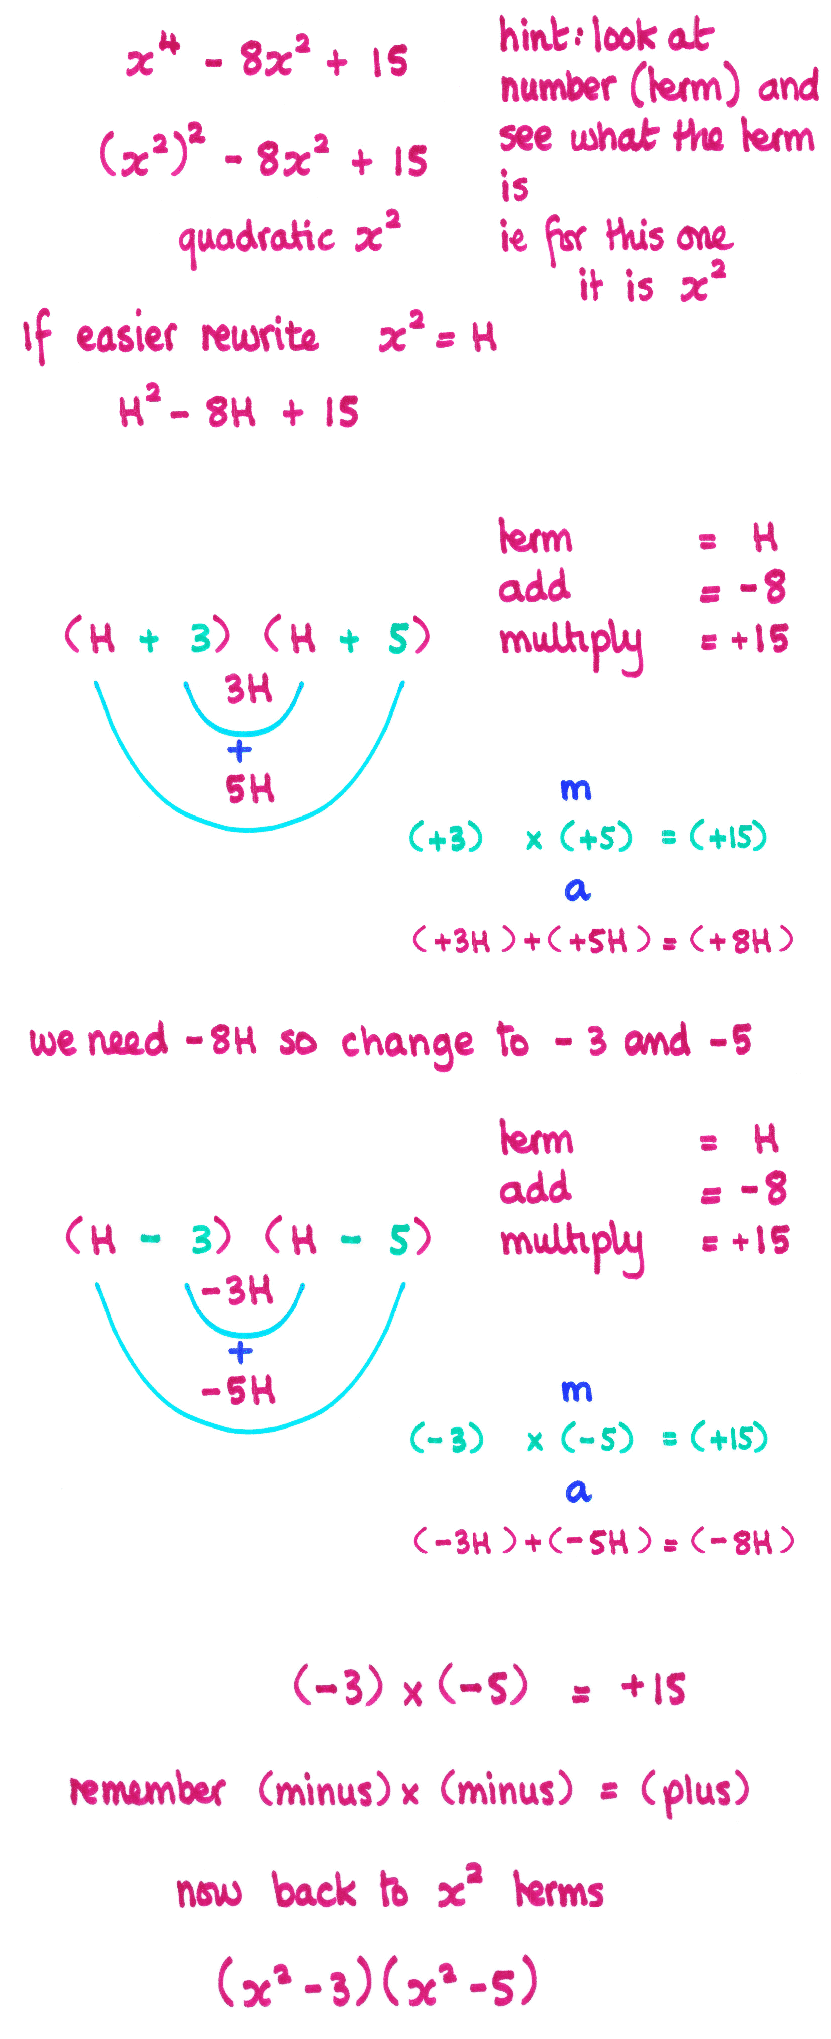 x⁴ - 8x² + 15
(x²)² - 8x² + 15
quadratic x²
hint: look at
number (term) and
see what the term
is
ie for this one
it is x²
If easier rewrite x² = H
H² - 8H + 15
term = H
add = -8
multiply = +15
(H + 3) (H + 5)
3H
+
5H
m
(+3) x (+5) = (+15)
a
(+3H) + (+5H) = (+8H)
we need -8H so change to -3 and -5
term = H
add = -8
multiply = +15
(H - 3) (H - 5)
-3H
+
-5H
m
(-3) x (-5) = (+15)
a
(-3H) + (-5H) = (-8H)
(-3) x (-5) = +15
remember (minus) x (minus) = (plus)
now back to x² terms
(x² - 3)(x² - 5)